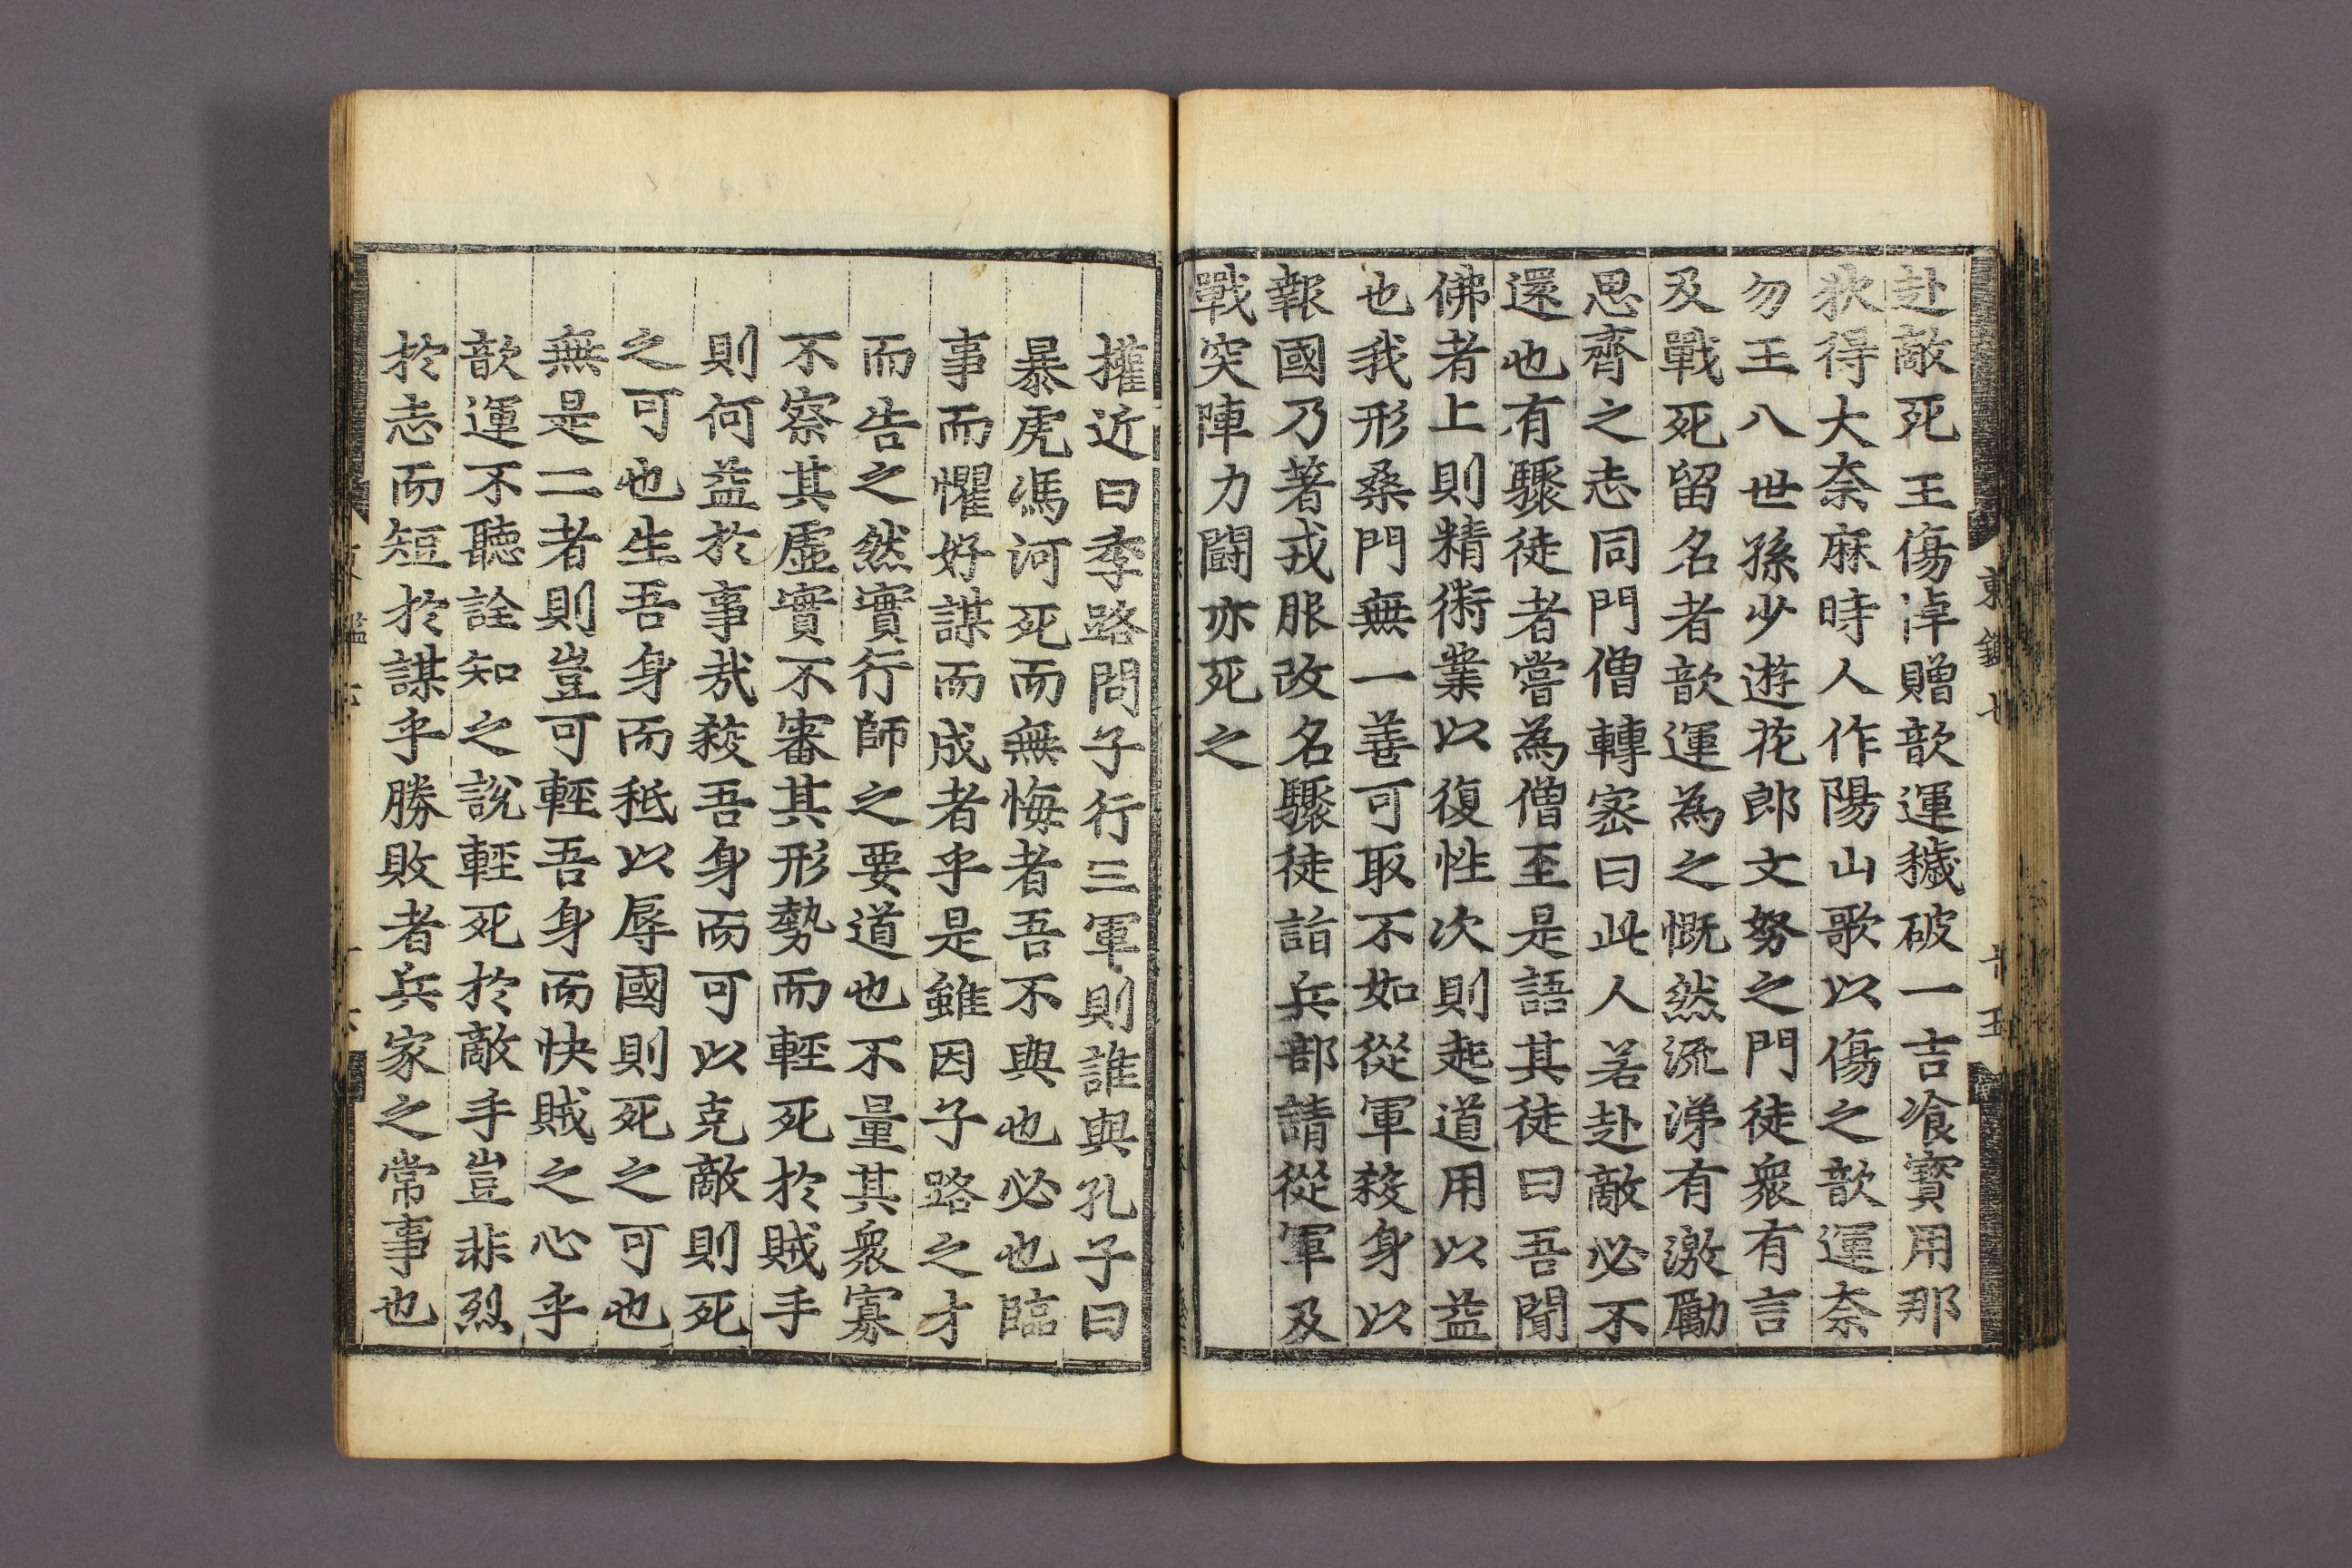 赴敵死王傷悼贈歆運穢破一吉飡寳用那
狄得大奈麻時人作陽山歌以傷之歆運奈
勿王八世孫少遊花郎文努之門徒衆有言
及戰死留名者歆運為之慨然流涕有激勵
思齊之志同門僧轉宻曰此人若赴敵必不
還也有驟徒者嘗為僧至是語其徒曰吾聞
佛者上則精術業以復性次則起道用以益
也我形桑門無一善可取不如從軍殺身以
報國乃著戎服改名驟徒詣兵部請從軍及
戰突陣力闘亦死之
權近曰季路問子行三軍則誰與孔子曰
暴虎馮河死而無悔者吾不與也必也臨
事而懼好謀而成者乎是雖因子路之才
而告之然實行師之要道也不量其衆寡
不察其虛實不審其形勢而輕死於賊手
則何益於事哉殺吾身而可以克敵則死
之可也生吾身而秪以辱國則死之可也
無是二者則豈可輕吾身而快賊之心乎
歆運不聽詮知之說輕死於敵手豈非烈
於志而短於謀乎勝敗者兵家之常事也